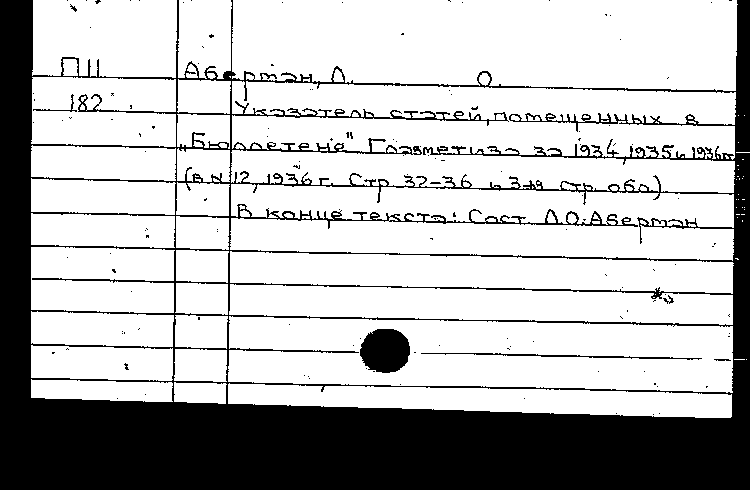 П11 Аберман, Л. О.
182 Указатель статей, помещенных в
„Бюллетене" Главметиза за 1934, 1935 и 1936гг
(в N 12, 1936 г. Стр 32-36 и 3-я стр. обл.)
В конце текста: Сост. Л.О. Аберман